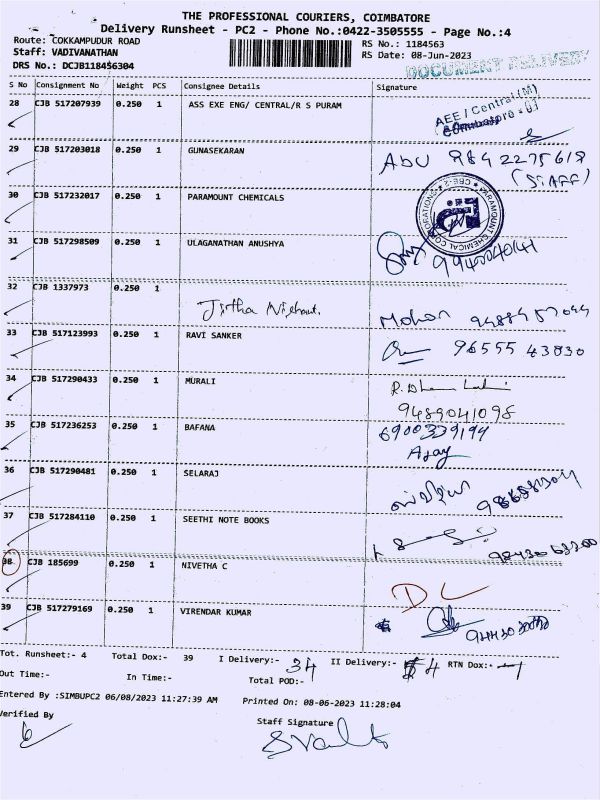 THE PROFESSIONAL COURIERS, COIMBATORE
Delivery Runsheet - PC2 - Phone No.:0422-3505555 - Page No.:4
Route: COKKAMPUDUR ROAD
RS No.: 1184563
Staff: VADIVANATHAN
RS Date: 08-Jun-2023
DRS No.: DCJB118456304
DOCUMENT DELIVERY
S No Consignment No Weight PCS Consignee Details Signature
28 CJB 517207939 0.250 1 ASS EXE ENG/ CENTRAL/R S PURAM
AEE / Central (M)
29 CJB 517203018 0.250 1 GUNASEKARAN
(STAFF)
30 CJB 517232017 0.250 1 PARAMOUNT CHEMICALS
PARAMOUNT CHEMICAL CORPORATIONS
31 CJB 517298509 0.250 1 ULAGANATHAN ANUSHYA
32 CJB 1337973 0.250 1
Mohan
33 CJB 517123993 0.250 1 RAVI SANKER
96555 43030
34 CJB 517290433 0.250 1 MURALI
9489041098
35 CJB 517236253 0.250 1 BAFANA
Ajay
36 CJB 517290481 0.250 1 SELARAJ
37 CJB 517284110 0.250 1 SEETHI NOTE BOOKS
38 CJB 185699 0.250 1 NIVETHA C
DL
39 CJB 517279169 0.250 1 VIRENDAR KUMAR
Tot. Runsheet:- 4 Total Dox:- 39 I Delivery:- 34 II Delivery:- 4 RTN Dox:- 1
Out Time:- In Time:- Total POD:-
Entered By :SIMBUPC2 06/08/2023 11:27:39 AM Printed On: 08-06-2023 11:28:04
Verified By Staff Signature